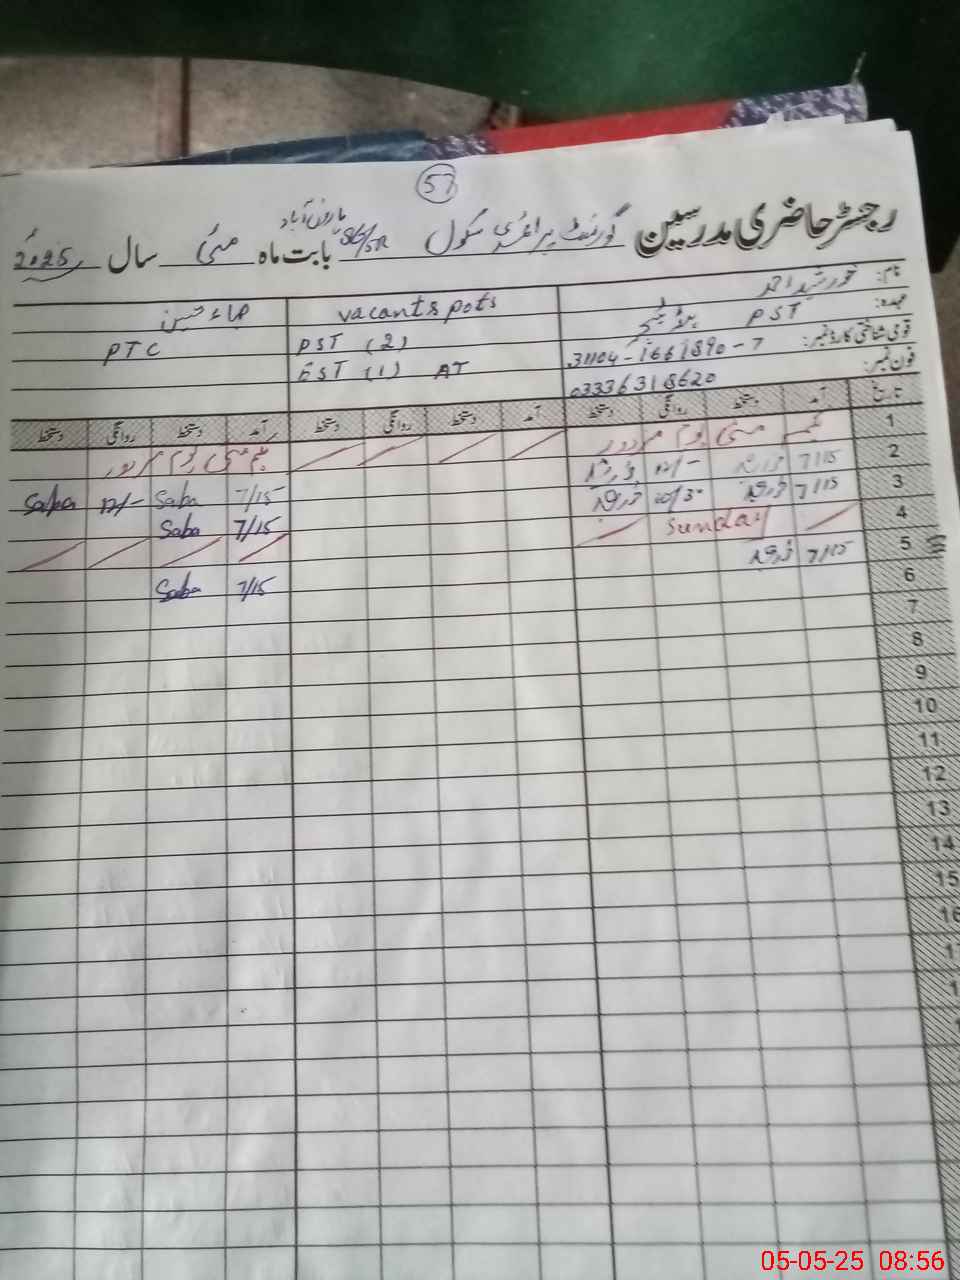 57
رجسٹر حاضری مدرسین گورنمنٹ پرائمری سکول 56/5R ہارون آباد بابت ماہ مئی سال 2025ء
نام: خورشید احمد
عہدہ: PST ہیڈ ٹیچر
قومی شناختی کارڈ نمبر: 31104-1661890-7
فون نمبر: 03336318620
vacant & pots
PST (2)
EST (1) AT
PTC
تاریخ آمد دستخط روانگی دستخط آمد دستخط روانگی دستخط آمد دستخط روانگی دستخط
1 یکم مئی یوم مزدور یکم مئی یوم مزدور
2 7/15 خورشید 12/- خورشید 7/15 Saba 12/- Saba
3 7/15 خورشید 10/30 خورشید 7/15 Saba
4 Sunday
5 7/15 خورشید 7/15 Saba
6
7
8
9
10
11
12
13
14
15
16
05-05-25 08:56